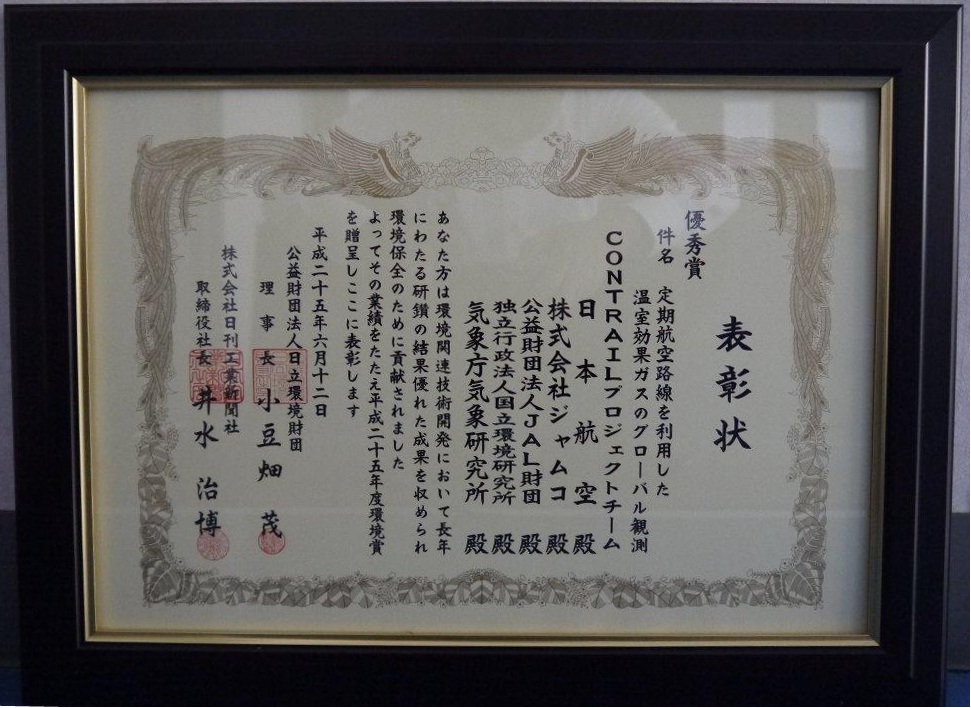 表彰状
優秀賞
件名 定期航空路線を利用した
温室効果ガスのグローバル観測
CONTRAILプロジェクトチーム
日本航空 殿
株式会社ジャムコ 殿
公益財団法人JAL財団 殿
独立行政法人国立環境研究所 殿
気象庁気象研究所 殿
あなた方は環境関連技術開発において長年
にわたる研鑽の結果優れた成果を収められ
環境保全のために貢献されました
よってその業績をたたえ平成二十五年度環境賞
を贈呈しここに表彰します
平成二十五年六月十二日
公益財団法人日立環境財団
理事長 小豆畑 茂
株式会社日刊工業新聞社
取締役社長 井水 治博